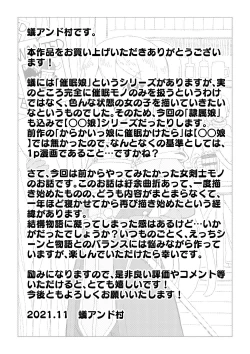 蟻アンド村です。
本作品をお買い上げいただきありがとうござい
ます！
蟻には「催眠娘」というシリーズがありますが、実
のところ完全に催眠モノのみを扱うというわけ
ではなく、色んな状態の女の子を描いていきたい
なというものでした。そのため、今回の「隷属娘」
も込みで【〇〇娘】シリーズだったりします。
前作の「からかいっ娘に催眠かけたら」は【〇〇娘
】では無かったので、なんとなくの基準としては、
1p漫画であること…ですかね？
さて、今回は前からやってみたかった女剣士モノ
のお話です。このお話は紆余曲折あって、一度描
き始めたものの、どうも内容がまとまらなくて、
一年ほど寝かせてから再び描き始めたという経
緯があります。
結構物語に凝ってしまった節はあるけど…いか
がだったでしょうか？いつものごとく、えっちシ
ーンと物語とのバランスには悩みながら作って
いますが、楽しんでいただけたら幸いです。
励みになりますので、是非良い評価やコメント等
いただけると、とても嬉しいです！
今後ともよろしくお願いいたします！
2021.11 蟻アンド村